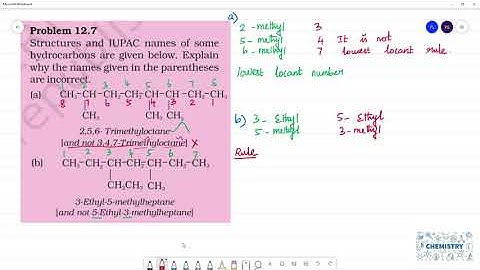 Problem 12.7
Structures and IUPAC names of some
hydrocarbons are given below. Explain
why the names given in the parentheses
are incorrect.
1 2 3 4 5 6 7 8
(a) CH₃–CH–CH₂–CH₂–CH–CH–CH₂–CH₃
8 7 6 5 4 3 2 1
CH₃ CH₃ CH₃
2,5,6- Trimethyloctane
[and not 3,4,7-Trimethyloctane] x
1 2 3 4 5 6 7
(b) CH₃–CH₂–CH–CH₂–CH–CH₂–CH₃
CH₂CH₃ CH₃
3-Ethyl-5-methylheptane
[and not 5-Ethyl-3-methylheptane]
a)
2 - methyl 3
5 - methyl 4 It is not
6 - methyl 7 lowest locant rule.
lowest locant number
b) 3 - Ethyl 5 - Ethyl
5 - methyl 3 - methyl
Rule
CHEMISTRY